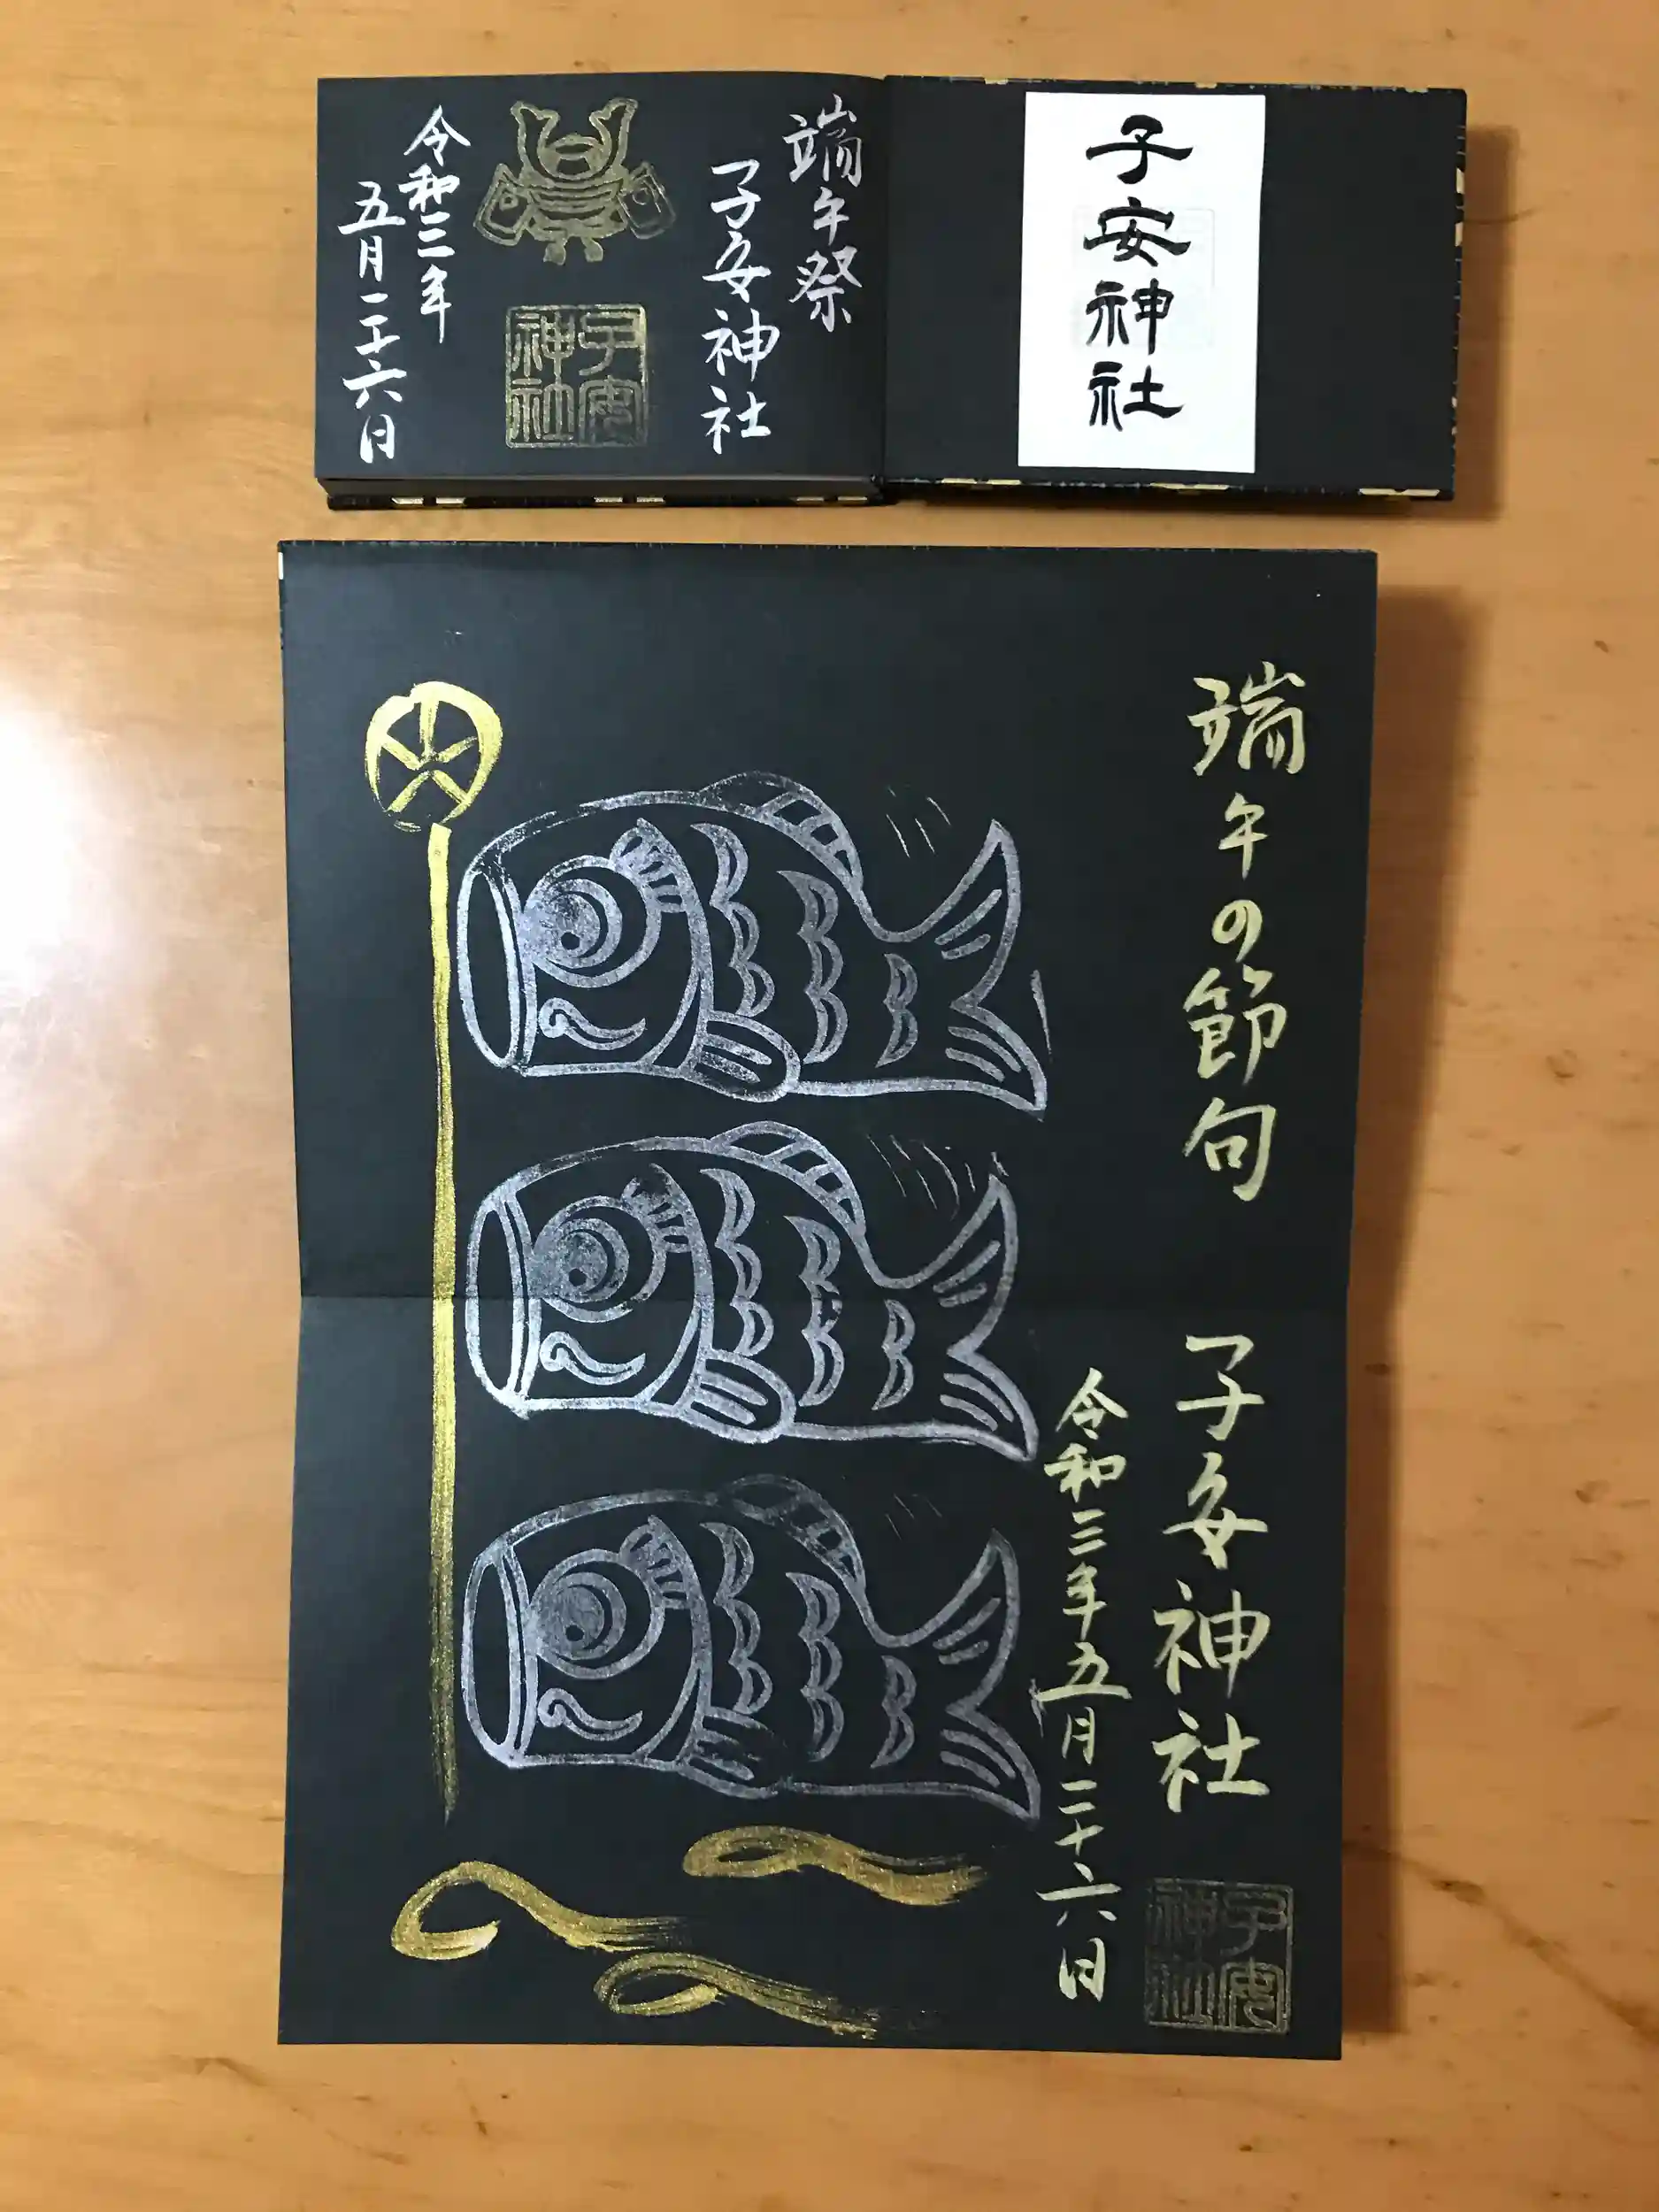 子安神社
端午祭
子安神社
子安神社
令和三年
五月二十六日
端午の節句
子安神社
令和三年五月二十六日
子安神社